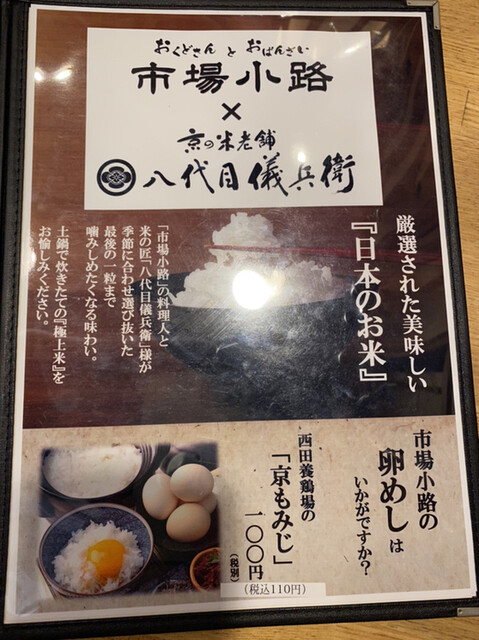 おくどさん と おばんざい
市場小路
×
京の米老舗
八代目儀兵衛
厳選された美味しい
『日本のお米』
「市場小路」の料理人と
米の匠「八代目儀兵衛」様が
季節に合わせ選び抜いた
最後の一粒まで
噛みしめたくなる味わい。
土鍋で炊きたての『極上米』を
お愉しみください。
市場小路の
卵めしは
いかがですか?
西田養鶏場の
「京もみじ」
一〇〇円
(税別)
(税込110円)